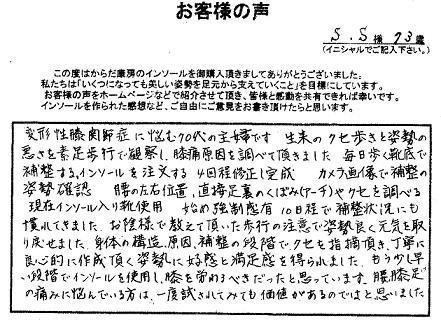 お客様の声
S.S 様 73 歳
(イニシャルでご記入下さい。)
この度はからだ康房のインソールを御購入頂きましてありがとうございました。
私たちは「いくつになっても美しい姿勢を足元から支えていくこと」を目標にしています。
お客様の声をホームページなどで紹介させて頂き、皆様と感動を共有できれば幸いです。
インソールを作られた感想など、ご自由にご意見をお書き頂けたらと思います。
変形性膝関節症に悩む70代の主婦です 生来のクセ歩きと姿勢の
悪さを素足歩行で観察し、膝痛原因を調べて頂きました 毎日歩く靴底で
補整するインソールを注文する 4回程修正し完成 カメラ画像で補整の
姿勢確認 腰の左右位置、直接足裏のくぼみ(アーチ)やクセを調べる
現在インソール入り靴使用 始め強制感有 10日程で補整状況にも
慣れてきました お陰様で教えて頂いた歩行の注意で姿勢良く元気を取り
戻せました 身体の構造、原因、補整の段階でクセを指摘頂き、丁寧に
良心的に作成頂く姿勢に好感と満足感を得られました もう少し早
い段階でインソールを使用し、膝を労わるべきだったと思っています。腰、膝、足
の痛みに悩んでいる方は、一度試されてみても価値があるのではと思いました